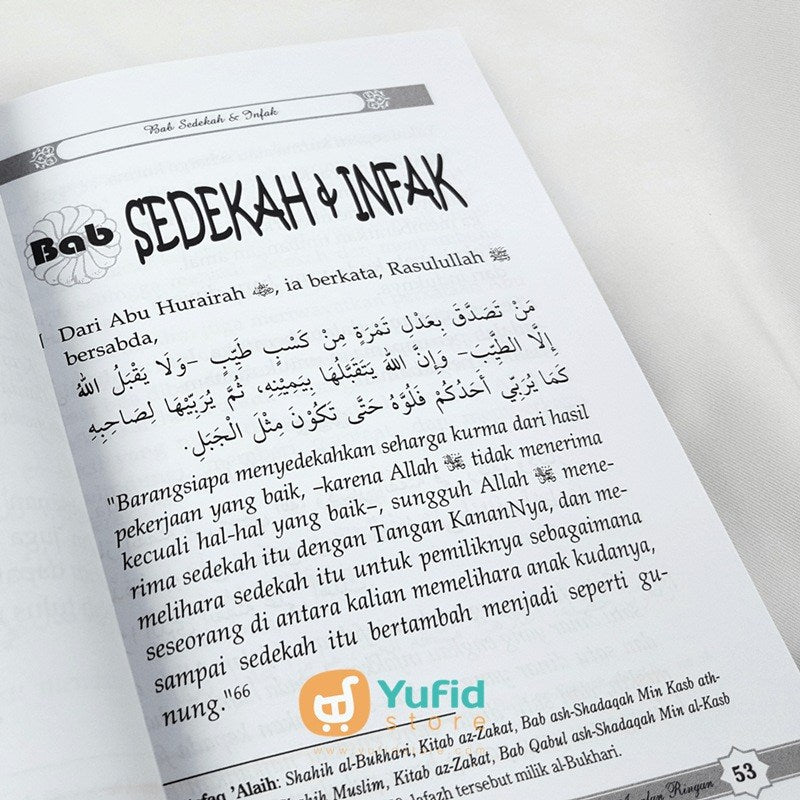 Bab Sedekah & Infak
Bab SEDEKAH & INFAK
Dari Abu Hurairah ﵁, ia berkata, Rasulullah ﷺ
bersabda,
مَنْ تَصَدَّقَ بِعَدْلِ تَمْرَةٍ مِنْ كَسْبٍ طَيِّبٍ –وَلَا يَقْبَلُ اللهُ
إِلَّا الطَّيِّبَ– وَإِنَّ اللهَ يَتَقَبَّلُهَا بِيَمِيْنِهِ، ثُمَّ يُرَبِّيْهَا لِصَاحِبِهِ
كَمَا يُرَبِّي أَحَدُكُمْ فَلُوَّهُ حَتَّى تَكُوْنَ مِثْلَ الْجَبَلِ.
"Barangsiapa menyedekahkan seharga kurma dari hasil
pekerjaan yang baik, –karena Allah ﷻ tidak menerima
kecuali hal-hal yang baik–, sungguh Allah ﷻ mene-
rima sedekah itu dengan Tangan KananNya, dan me-
melihara sedekah itu untuk pemiliknya sebagaimana
seseorang di antara kalian memelihara anak kudanya,
sampai sedekah itu bertambah menjadi seperti gu-
nung."66
Yufid
store
'Alaih: Shahih al-Bukhari, Kitab az-Zakat, Bab ash-Shadaqah Min Kasb ath-
Muslim, Kitab az-Zakat, Bab Qabul ash-Shadaqah Min al-Kasb
lafazh tersebut milik al-Bukhari.
Ringan
53